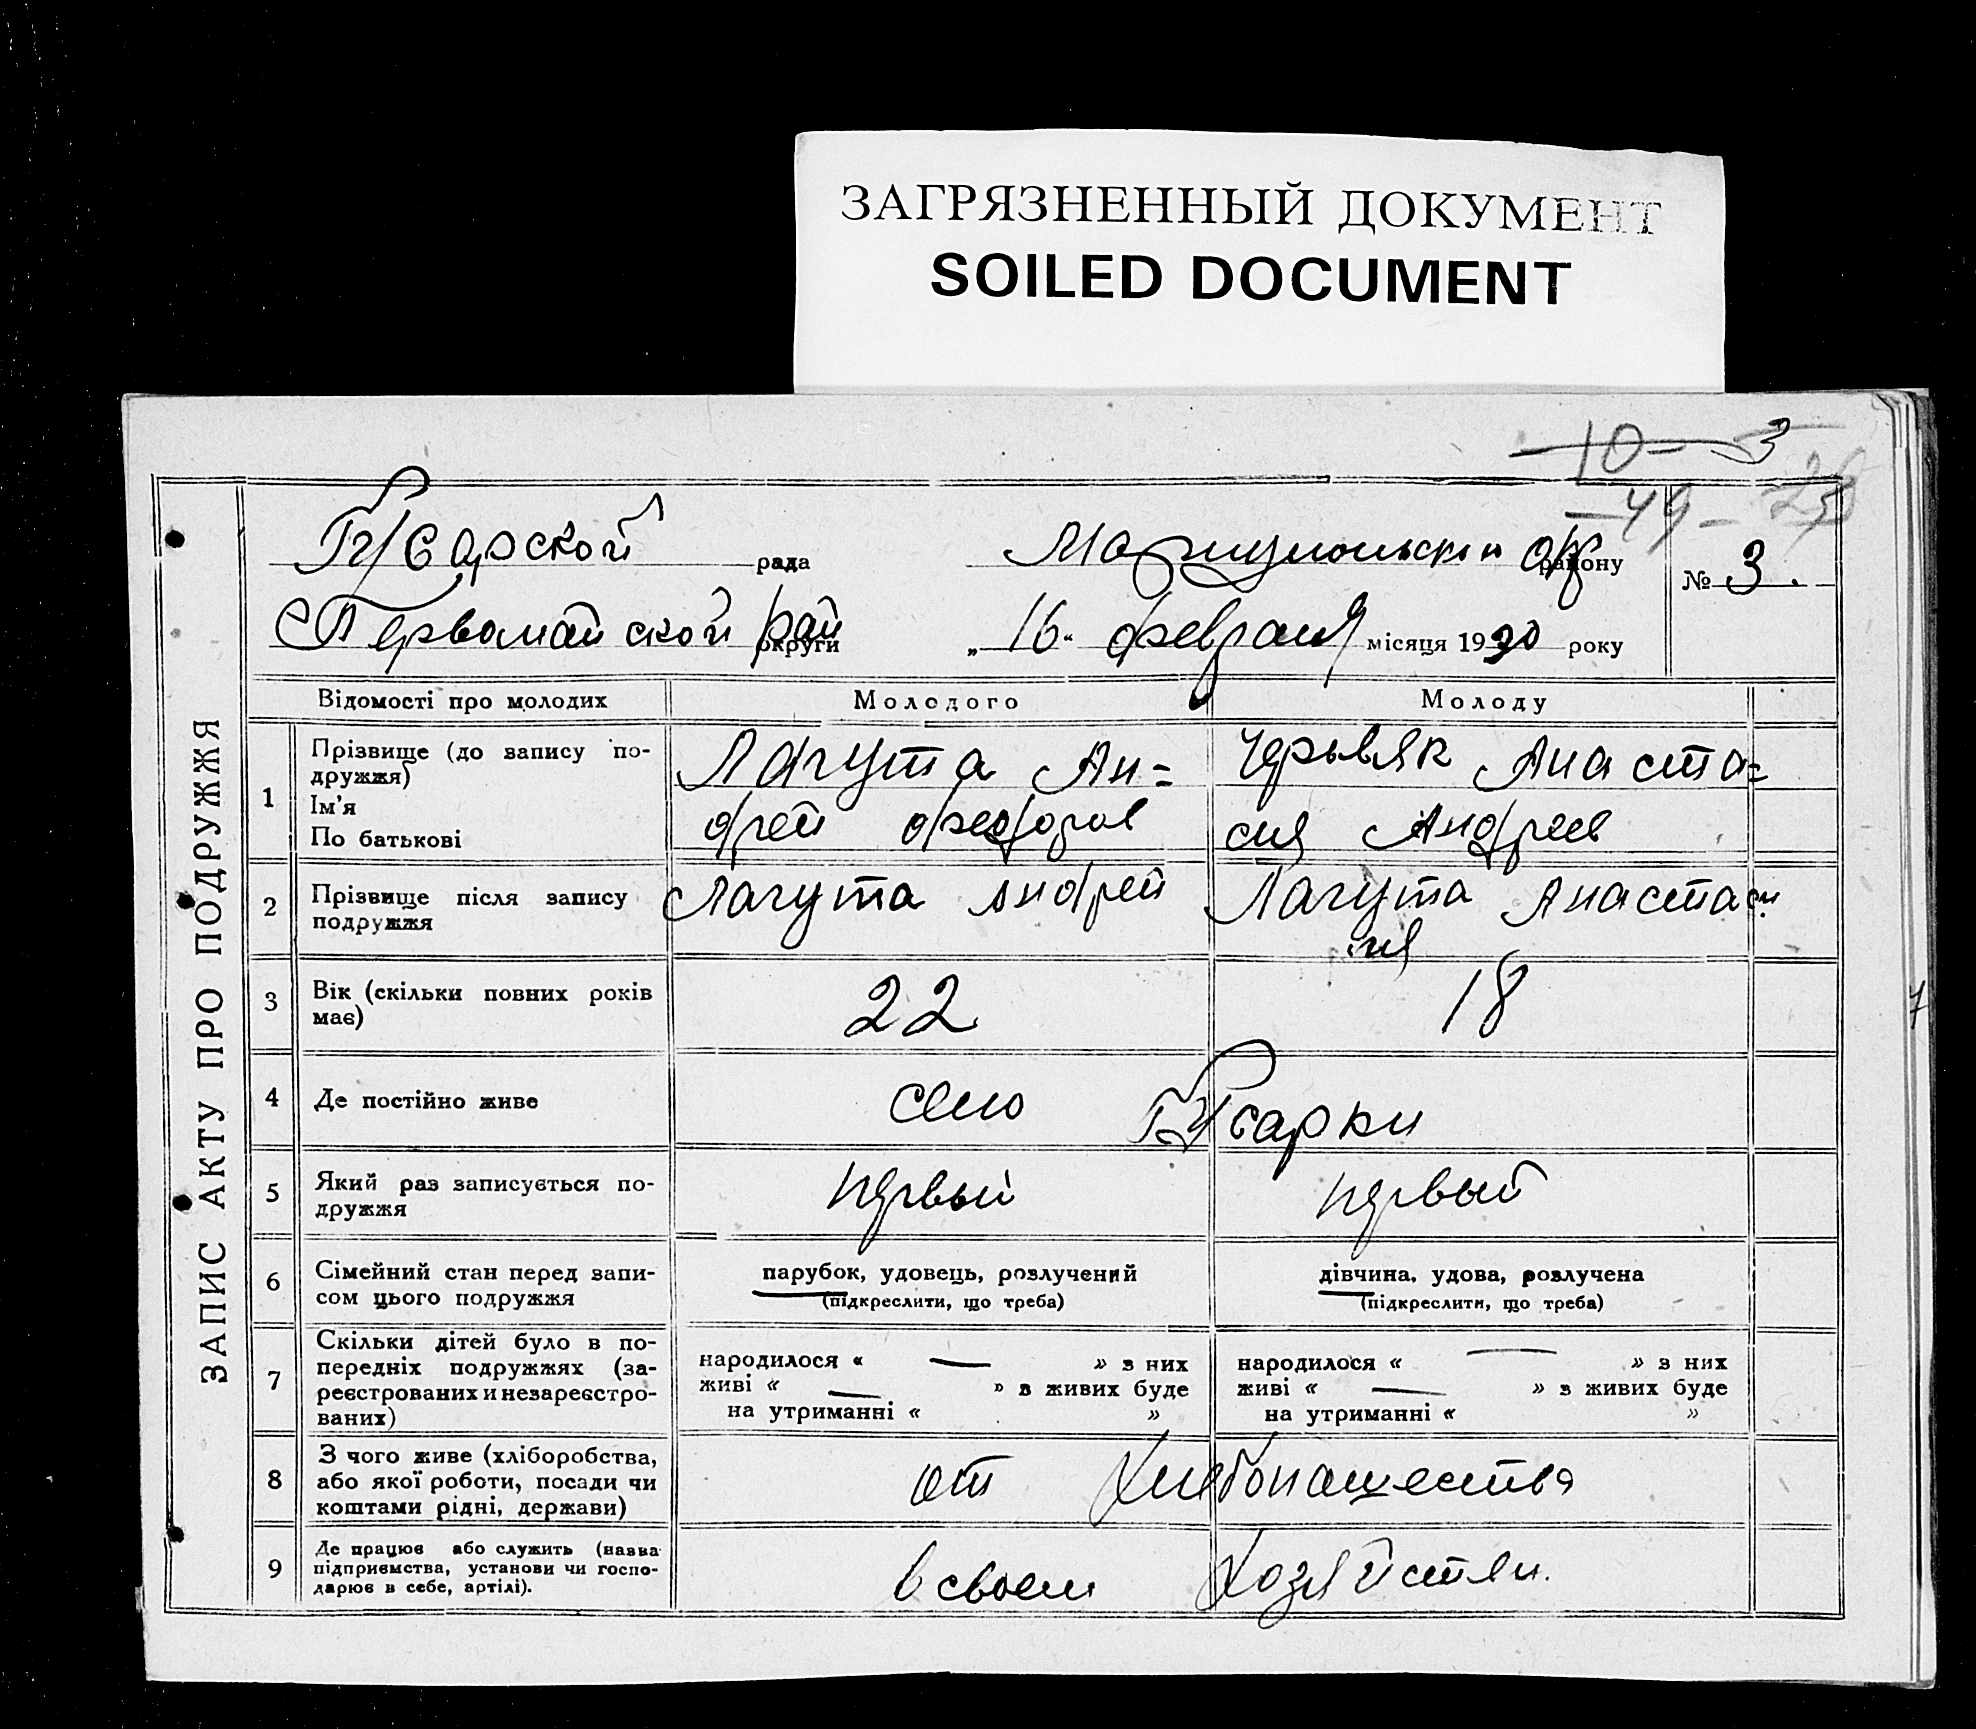 ЗАГРЯЗНЕННЫЙ ДОКУМЕНТ
SOILED DOCUMENT
10 - 3
- 49 -
Гусарской рада Мариупольской окр району
№ 3.
Первомайской рай округи „16“ февраля місяця 1930 року
ЗАПИС АКТУ ПРО ПОДРУЖЖЯ
Відомості про молодих Молодого Молоду
1 Прізвище (до запису по-
дружжя)
Ім'я
По батькові
Лагута Ан=
дрей Федоров
Черьвяк Анаста=
сия Андреев
2 Прізвище після запису
подружжя
Лагута Андрей
Лагута Анастаси
ия
3 Вік (скільки повних років
має)
22 18
4 Де постійно живе село Гусарки
5 Який раз записується по-
дружжя
первый первый
6 Сімейний стан перед запи-
сом цього подружжя
парубок, удовець, розлучений
(підкреслити, що треба)
дівчина, удова, розлучена
(підкреслити, що треба)
7 Скільки дітей було в по-
передніх подружжях (за-
реєстрованих и незареєстро-
ваних)
народилося « — » з них
живі « — » з живих буде
на утриманні « »
народилося « — » з них
живі « — » з живих буде
на утриманні « »
8 З чого живе (хліборобства,
або якої роботи, посади чи
коштами рідні, держави)
от хлебопашества
9 Де працює або служить (назва
підприємства, установи чи госпо-
дарює в себе, артілі).
в своем хозяйстви.